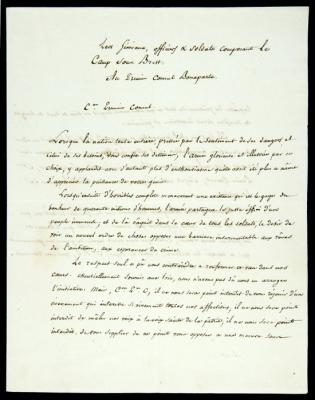 Les Généraux, officiers & soldats composant le
Camp sous Brest.
Au Premier Consul Bonaparte.
C.en Premier Consul.
Lorsque la nation toute entière, pressée par le sentiment de ses dangers et
celui de ses besoins, vous confia ses destinées, l'armée glorieuse et illustrée par ce
choix, y applaudit avec d'autant plus d'enthousiasme qu'elle avait été plus à même
d'apprécier la puissance de votre génie.
Lorsqu'ensuite d'horribles complots menacèrent une existence qui est le gage du
bonheur de quarante millions d'hommes, l'armée partagea le juste effroi d'un
peuple immense, et de là naquit dans le cœur de tous les soldats, le désir de
voir un nouvel ordre de choses opposer une barrière insurmontable aux rêves
de l'ambition, aux espérances du crime.
Le respect seul a pu nous contraindre à renfermer ce vœu dans nos
cœurs. Essentiellement soumis aux lois, nous n'avons pas dû nous en arroger
l'initiative. Mais, C.en P.er C., il ne nous sera point interdit de nous réjouir d'un
événement qui intéresse si vivement toutes nos affections, il ne nous sera point
interdit de mêler nos voix à la voix sainte de la patrie, il ne nous sera point
interdit, de vous supplier de ne point vous opposer à une mesure sans